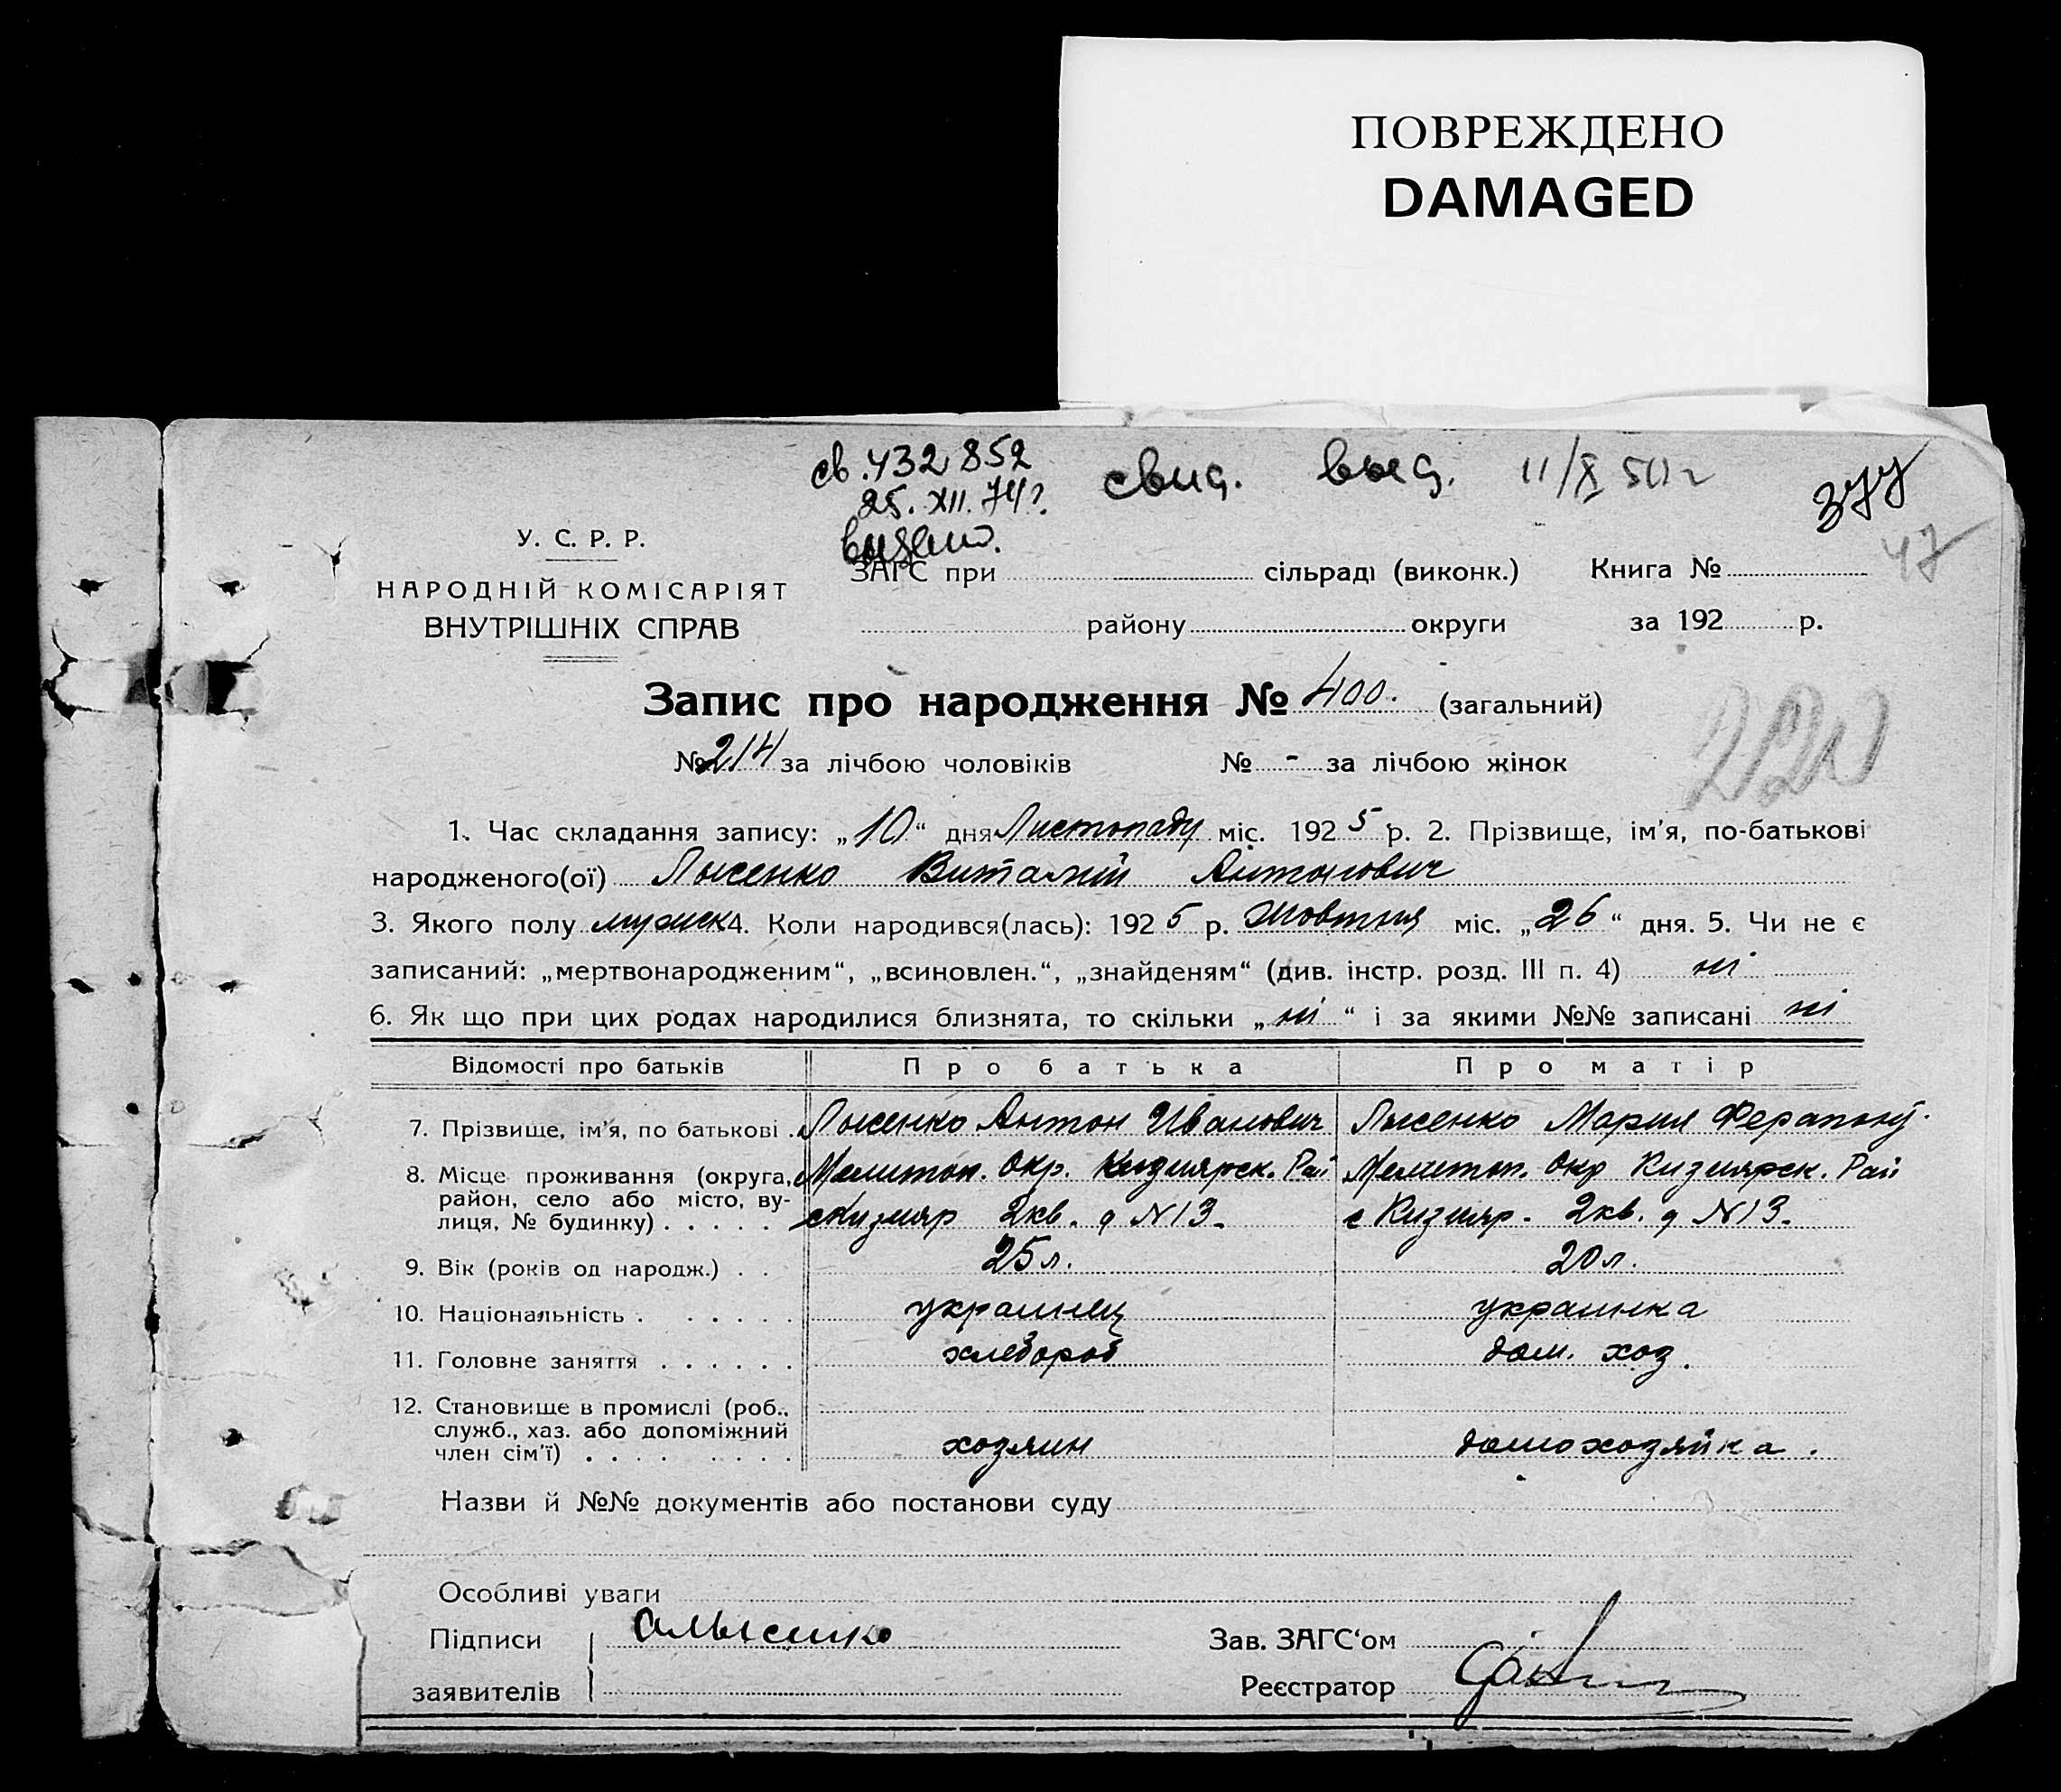 ПОВРЕЖДЕНО
DAMAGED
св. 432852
25. XII. 74г.
видано.
свид. выд. 11/X 50г
47
У. С. Р. Р.
НАРОДНІЙ КОМІСАРІЯТ
ВНУТРІШНІХ СПРАВ
ЗАГС при сільраді (виконк.) Книга №
району округи за 192 р.
Запис про народження № 400. (загальний)
№ 214 за лічбою чоловіків № - за лічбою жінок
1. Час складання запису: „10“ дня Листопаду міс. 1925 р. 2. Прізвище, ім'я, по-батькові
народженого(ої) Лысенко Виталий Антонович
3. Якого полу мужеск 4. Коли народився(лась): 1925 р. Жовтня міс. „26“ дня. 5. Чи не є
записаний: „мертвонародженим“, „всиновлен.“, „знайденям“ (див. інстр. розд. III п. 4) ні
6. Як що при цих родах народилися близнята, то скільки „ні“ і за якими №№ записані ні
Відомості про батьків Про батька Про матір
7. Прізвище, ім'я, по батькові . Лысенко Антон Иванович Лысенко Мария Ферапонт.
8. Місце проживання (округа, Мелитоп. Окр. Кизиярск. Рай Мелитоп. Окр Кизиярск. Рай
район, село або місто, ву-
лиця, № будинку) . . . . . с Кизияр 2кв. д N13. с Кизияр. 2кв. д N13.
9. Вік (років од народж.) . . 25 л. 20 л.
10. Національність . . . . . . украинец украинка
11. Головне заняття . . . . . . хлебороб дом. хоз.
12. Становище в промислі (роб.,
служб., хаз. або допоміжний
член сім'ї) . . . . . . . . хозяин домохозяйка.
Назви й №№ документів або постанови суду
Особливі уваги
Підписи Алысенко Зав. ЗАГС'ом
заявителів Реєстратор